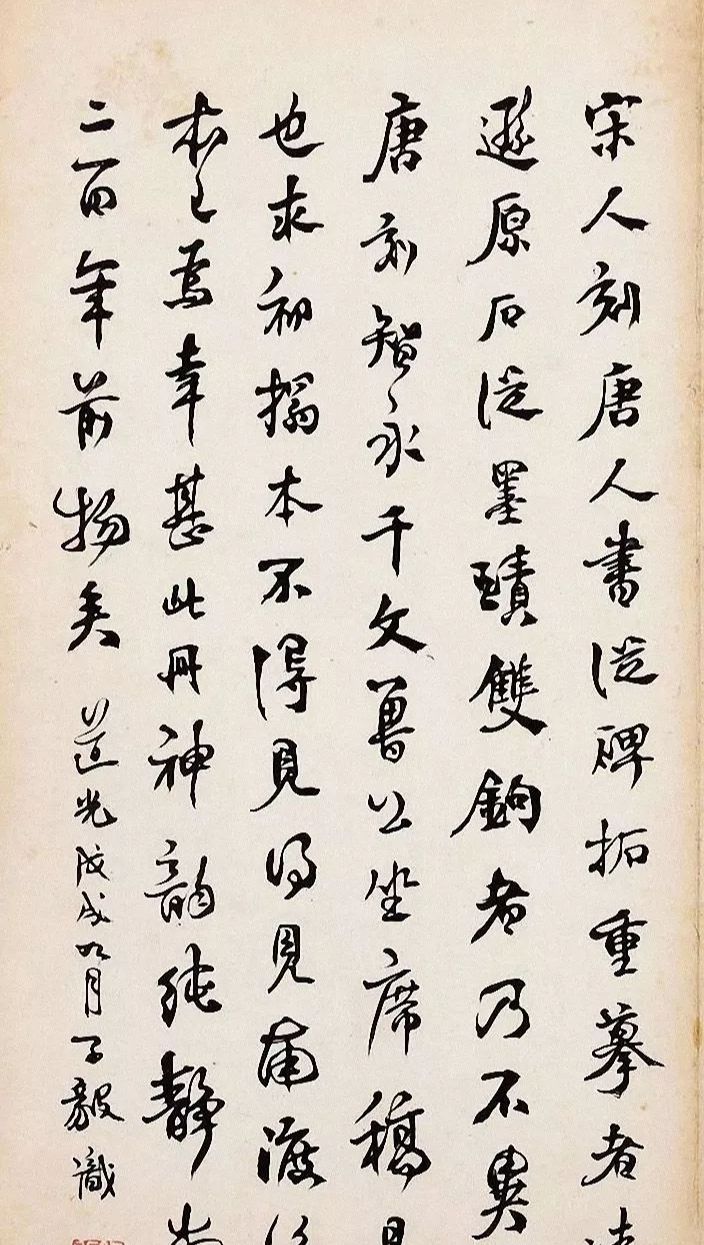 宋人刻唐人書從碑拓重摹者
遜原石從墨蹟雙鉤者乃不異
唐刻智永千文魯公坐席稿
也求初搨本不得見得見南渡
本已焉幸甚此冊神韻純靜
二百年前物矣
道光戊戌九月子毅識